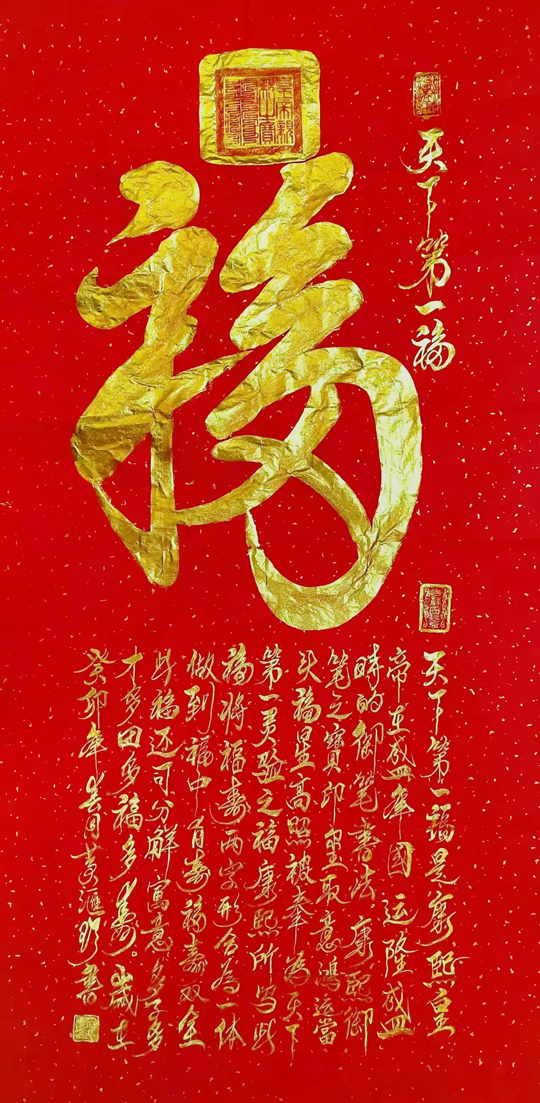 天下第一福
福
天下第一福是康熙皇
帝在盛年國运隆盛
時的御笔書法康熙御
笔之寶印璽取意鴻运當
头福星高照被奉为天下
第一灵验之福康熙所写此
福将福壽两字形合为一体
做到福中有壽福壽双全
此福还可分解寓意多子多
才多田多福多壽。歲在
癸卯年春月 書